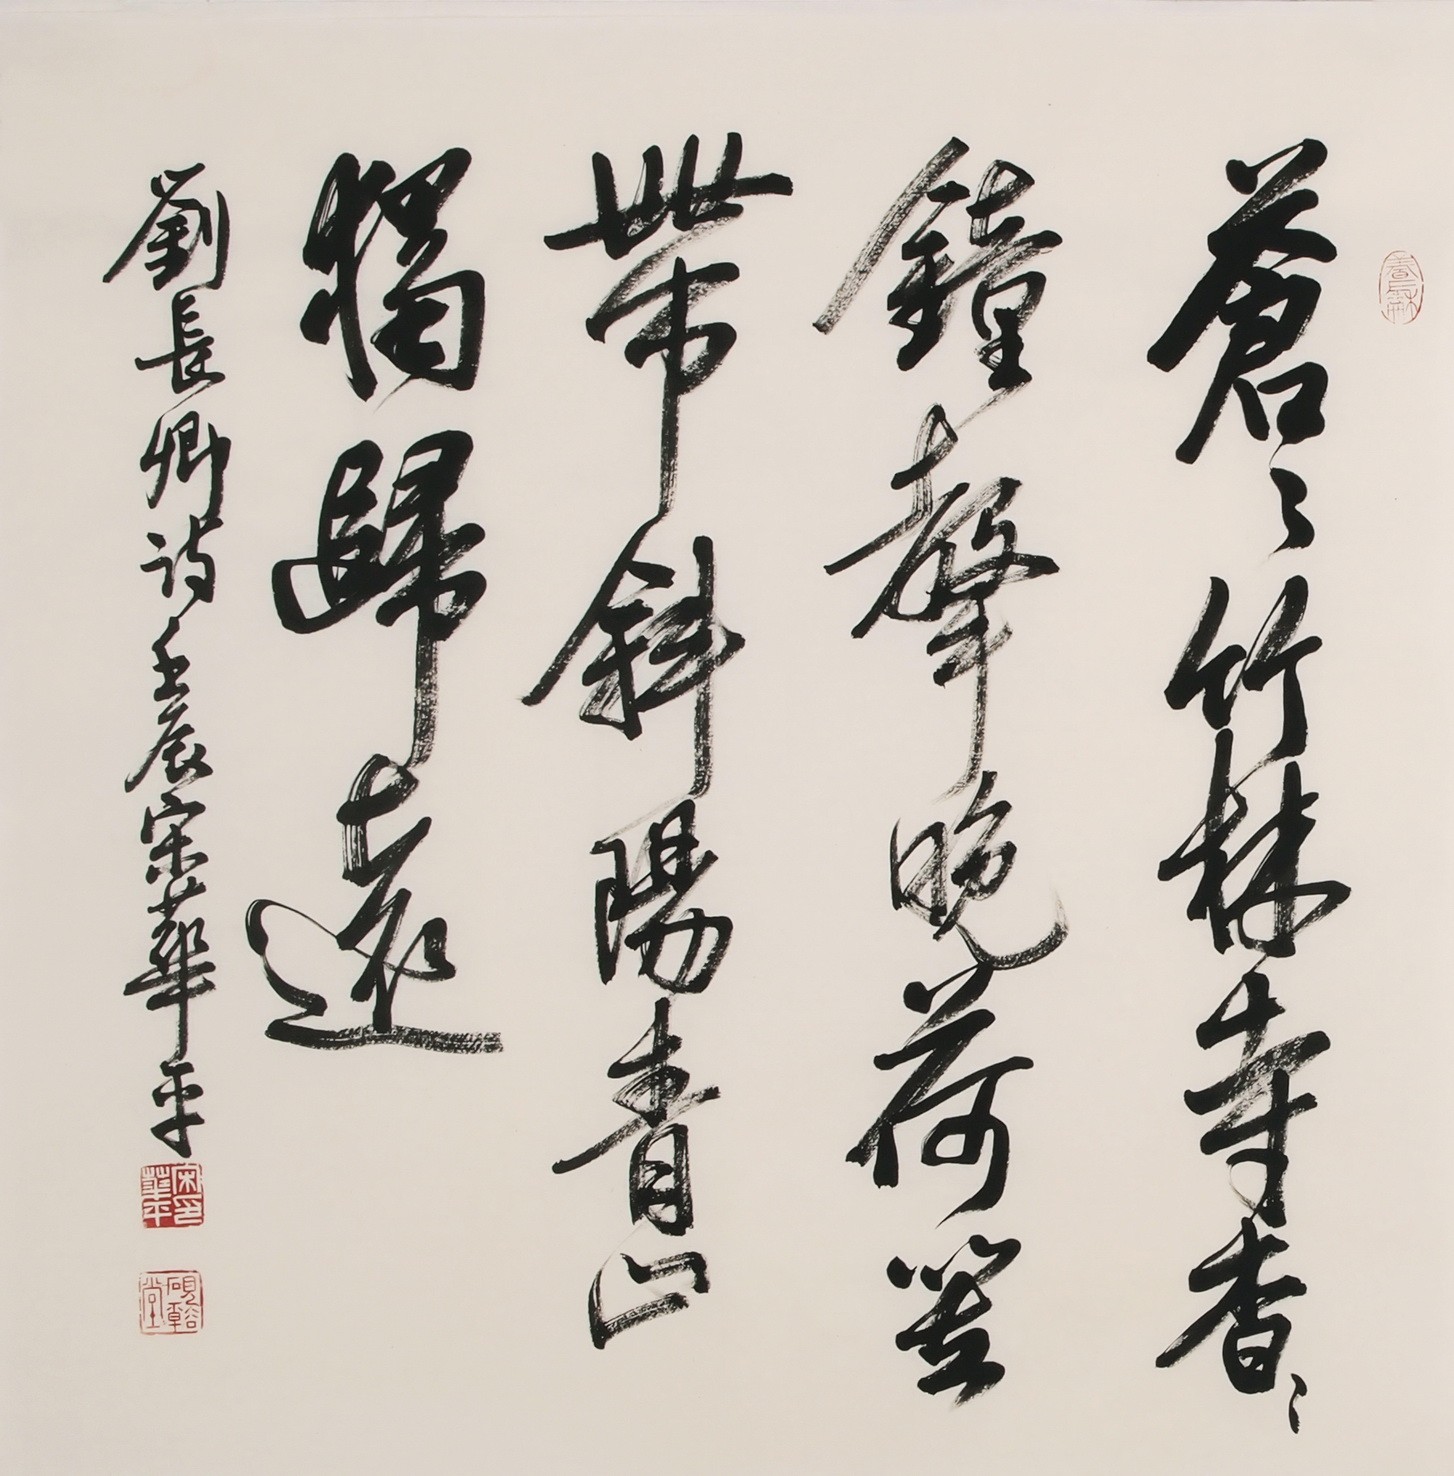 蒼〻竹林寺杳〻
鐘聲晚荷笠
帶斜陽青山
獨歸遠
劉長卿詩壬辰宋華平
宋華平印